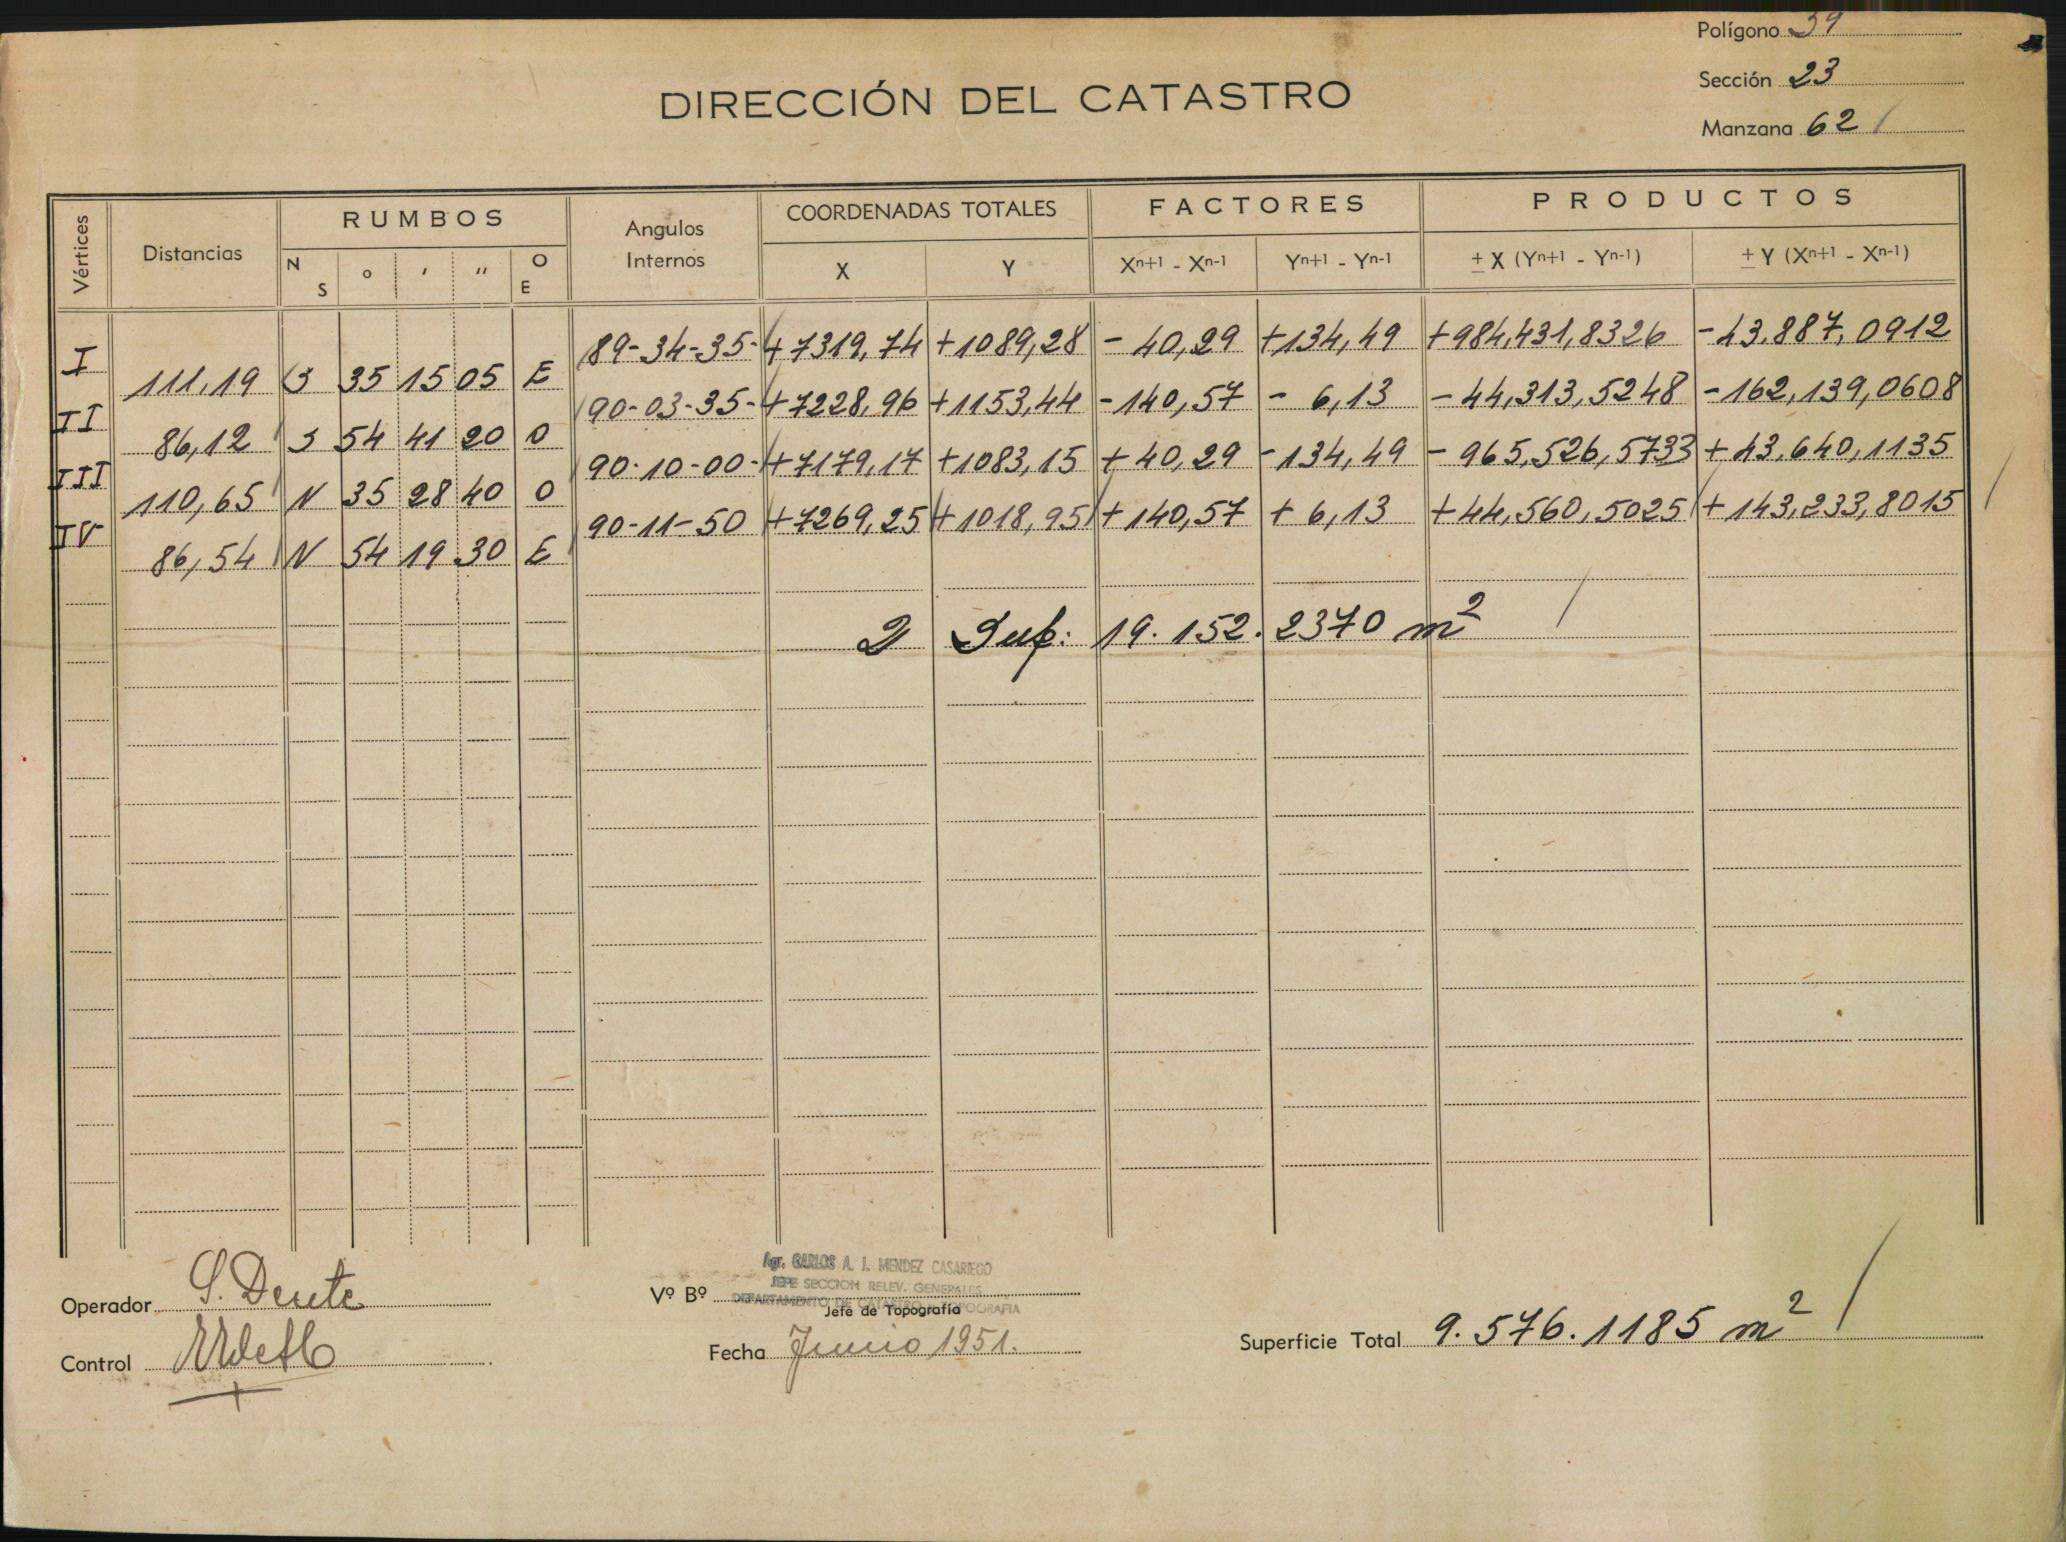 Polígono 39
Sección 23
Manzana 62
DIRECCIÓN DEL CATASTRO
Vértices Distancias RUMBOS Angulos Internos COORDENADAS TOTALES FACTORES PRODUCTOS
N S ° ' '' O E X Y Xn+1 - Xn-1 Yn+1 - Yn-1 ± X (Yn+1 - Yn-1) ± Y (Xn+1 - Xn-1)
I 89-34-35- +7319,74 +1089,28 - 40,29 +134,49 +984,431,8326 -43.887,0912
111,19 S 35 15 05 E
II 90-03-35- +7228,96 +1153,44 -140,57 - 6,13 -44,313,5248 -162,139,0608
86,12 S 54 41 20 O
III 90-10-00- +7179,17 +1083,15 +40,29 -134,49 - 965,526,5733 +43,640,1135
110,65 N 35 28 40 O
IV 90-11-50 +7269,25 +1018,95 +140,57 + 6,13 +44,560,5025 +143,233,8015
86,54 N 54 19 30 E
2 Sup: 19.152.2370 m2
Agr. CARLOS A. J. MENDEZ CASARIEGO
JEFE SECCION RELEV. GENERALES
DEPARTAMENTO DE CATASTRO Y TOPOGRAFIA
Operador
Vº Bº
Jefe de Topografía
Control
Fecha Junio 1951.
Superficie Total 9.576.1185 m2